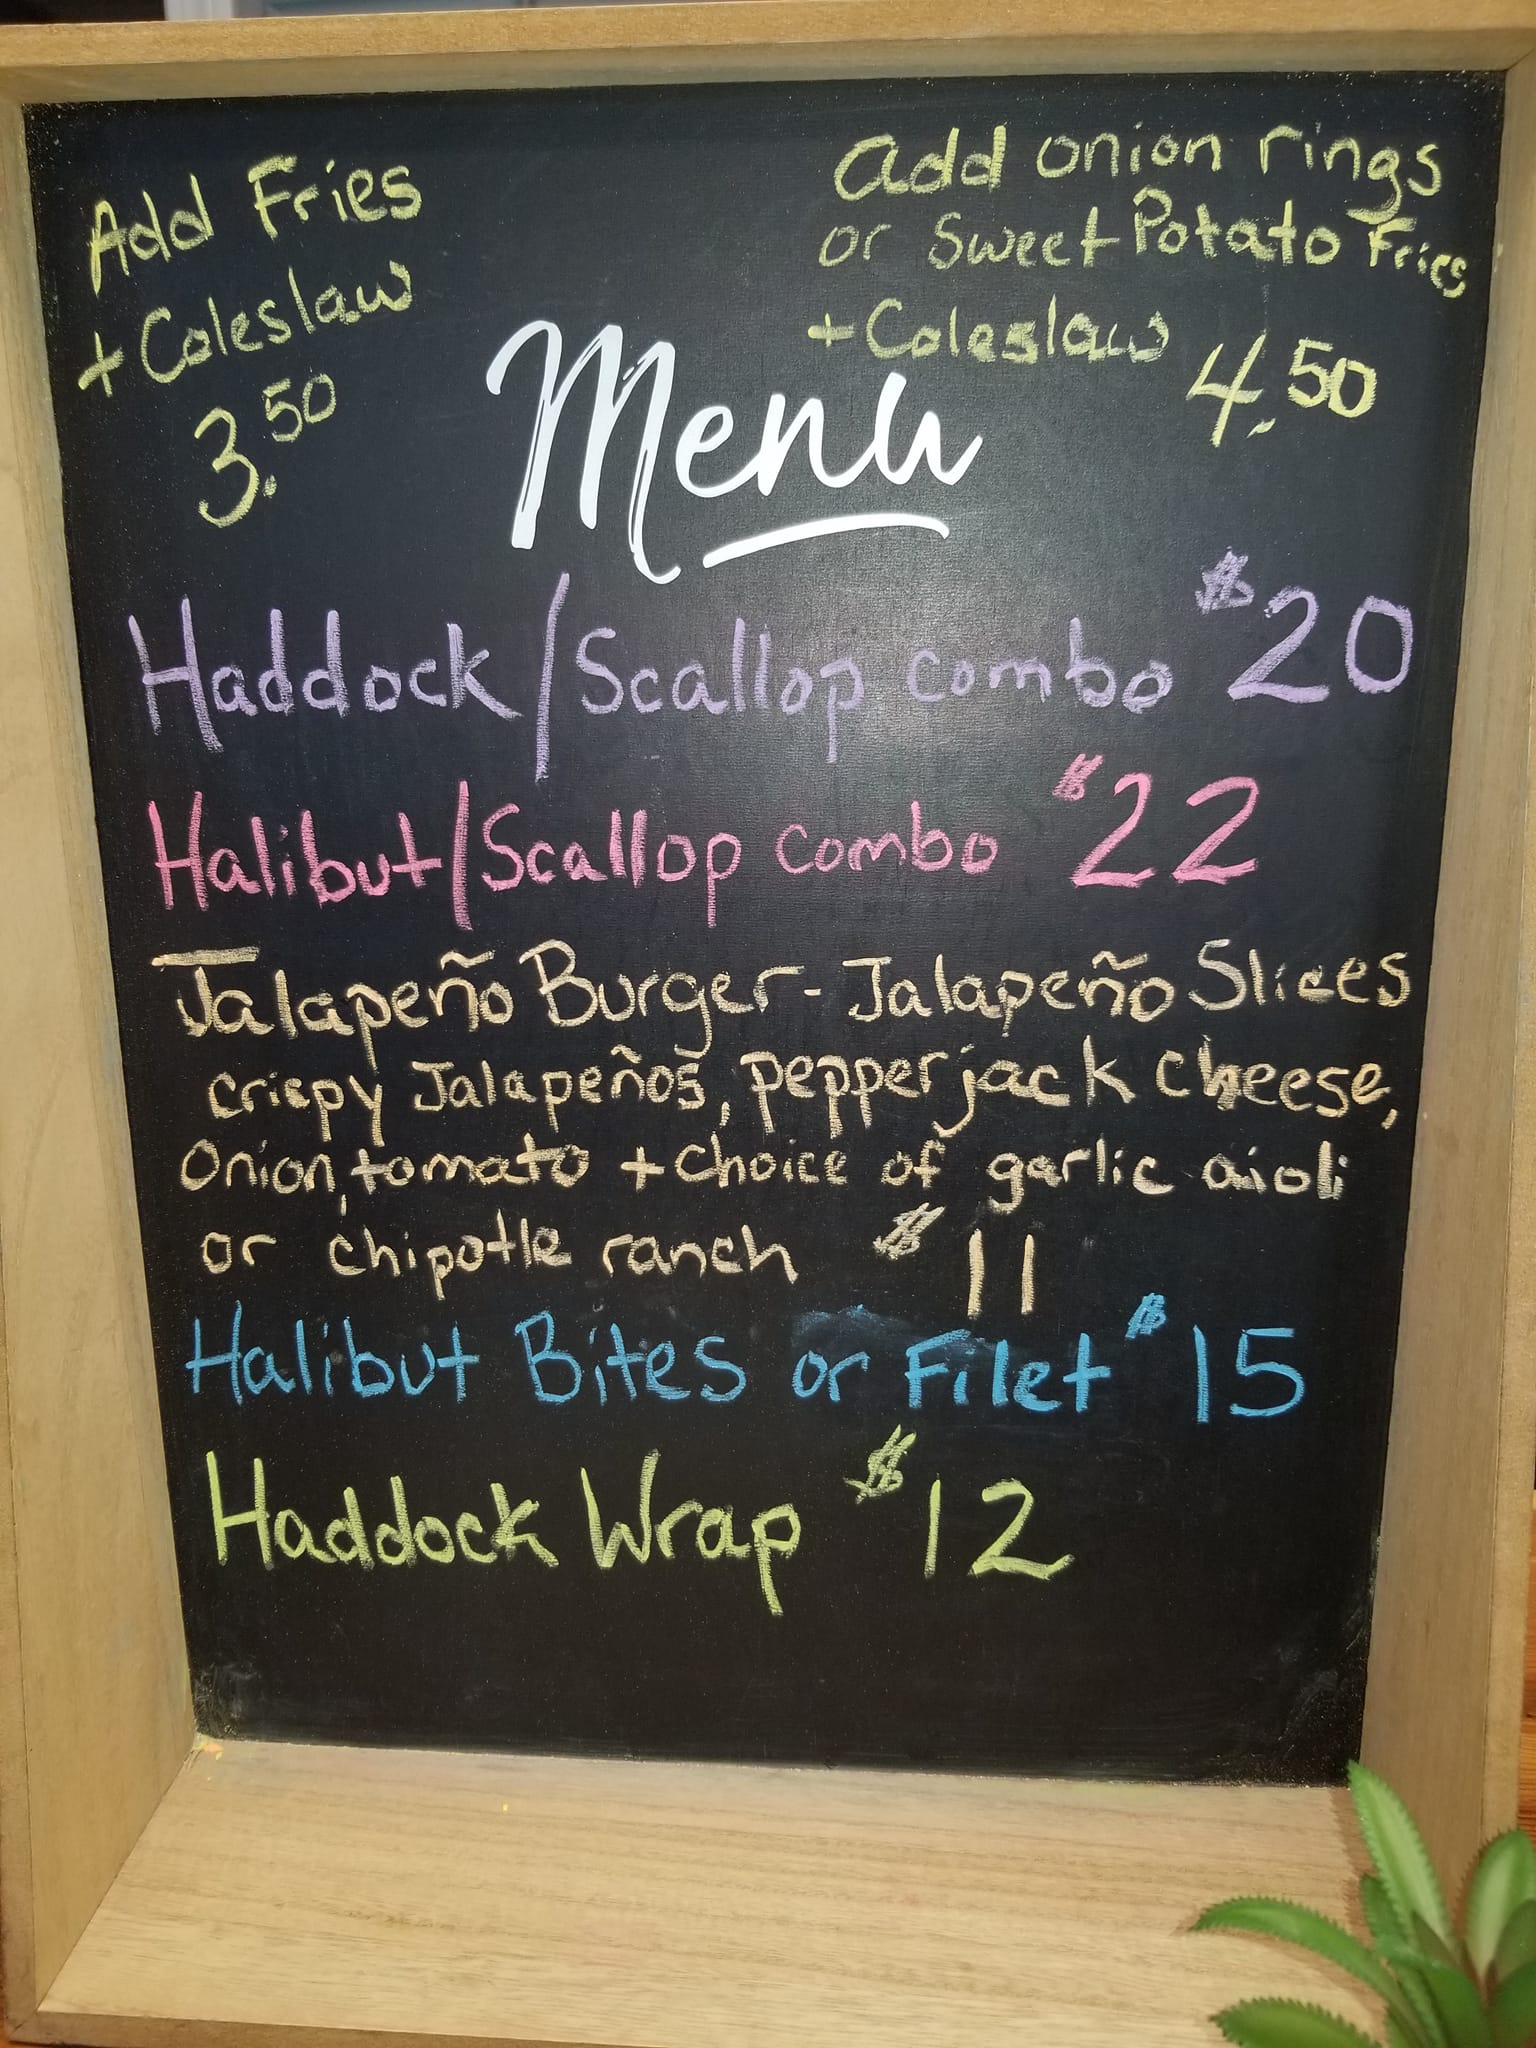 Add Fries
+ Coleslaw
3.50
add onion rings
or Sweet Potato Fries
+ Coleslaw 4.50
Menu
Haddock/Scallop combo $20
Halibut/Scallop combo $22
Jalapeño Burger - Jalapeño Slices
crispy Jalapeños, pepper jack cheese,
onion, tomato + choice of garlic aioli
or chipotle ranch $11
Halibut Bites or Filet $15
Haddock Wrap $12